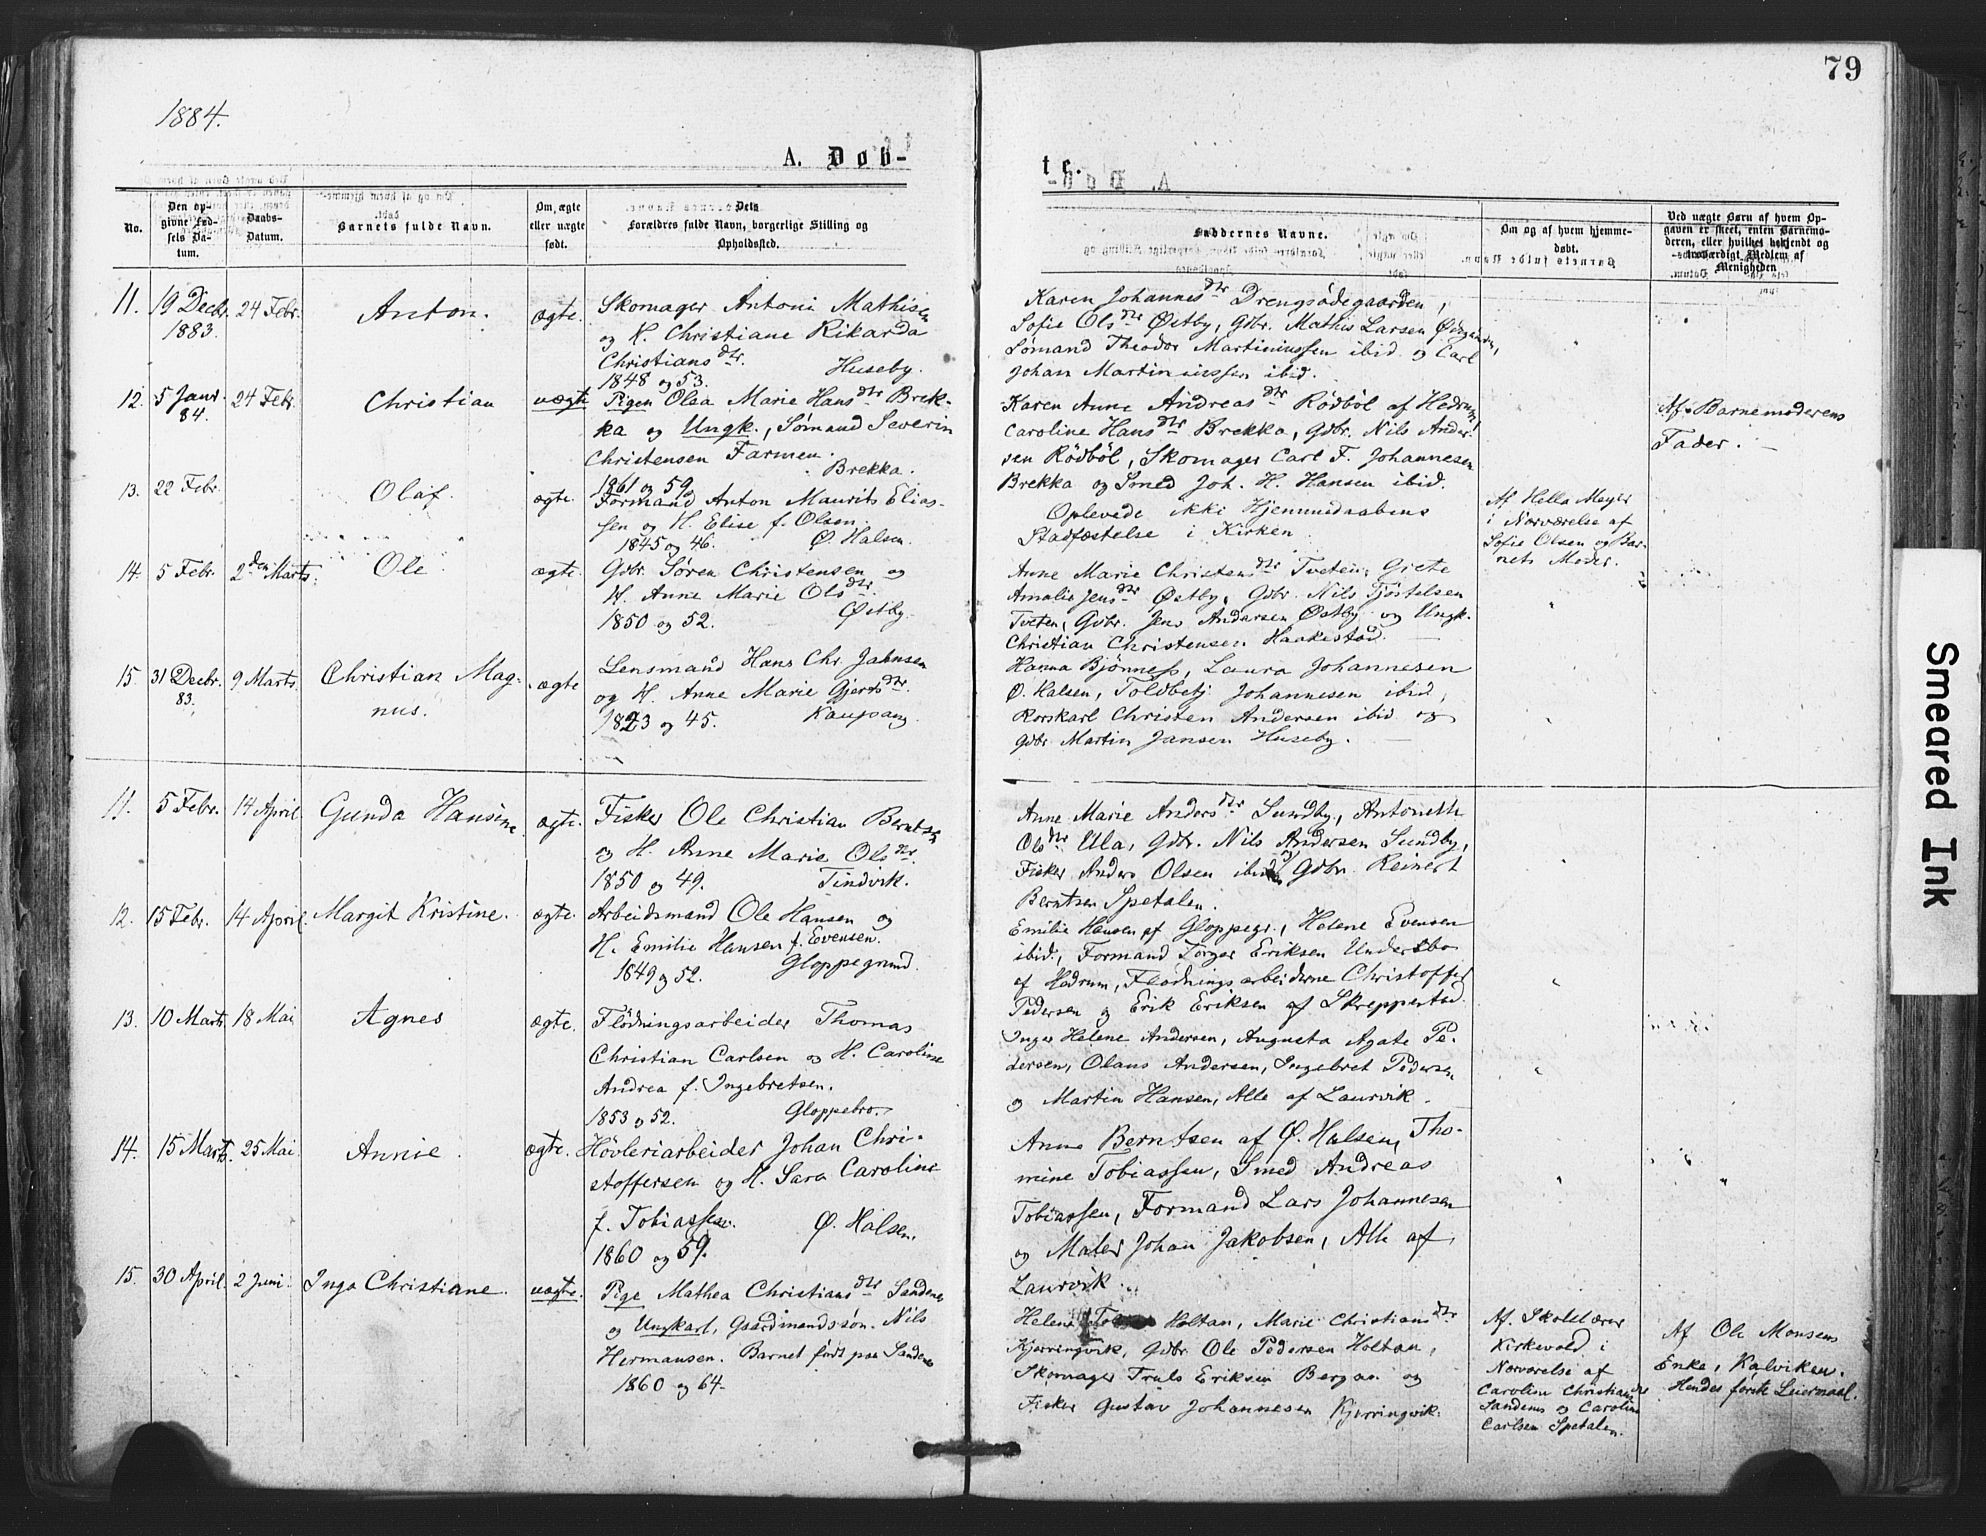 79
1884.
A. Døb-
te.
No.
Den op-
givne Fød-
sels Da-
tum.
Daabs-
Datum.
Barnets fulde Navn.
Om ægte
eller uægte
født.
Forældres fulde Navn, borgerlige Stilling og
Opholdssted.
Faddernes Navne.
Om og af hvem hjemme-
døbt.
Ved uægte Børn af hvem Op-
gaven er skeet, enten Barnemo-
deren, eller hvilket bekjendt og
troværdigt Medlem af
Menigheden
11. 19 Decbr. 24 Febr. Anton. ægte. Skomager Antoni Mathisen
1883. og H. Christiane Rikarda
Christiansdtr. Huseby.
1848 og 53.
Karen Johannesdtr Drengsödegaarden,
Sofie Olsdtr Østby, Gdbr. Mathis Larsen
Sømand Theodor Martiniussen ibid og Carl
Johan Martiniussen ibid.
12. 5 Janr. 24 Febr. Christian uægte Pigen Olea Marie Hansdtr Brek-
84. ka og Ungk., Sømand Severin
Christensen Farmen.
Brekka.
1861 og 59.
Karen Anne Andreasdtr Rödböl af Hedrum,
Caroline Hansdtr Brekka, Gdbr. Nils Ander-
sen Rödböl, Skomager Carl F. Johannesen
Brekka og Smed Joh. H. Hansen ibid.
Af Barnemoderens
Fader.
13. 22 Febr. Olaf. ægte. Formand Anton Maurits Elias-
sen og H. Elise f. Olsen.
1845 og 46. Ø. Halsen.
Oplevede ikke Hjemmedaabens
Stadfæstelse i Kirken
Af Hella Meyer
i Nærværelse af
Sofie Olsen og Bar-
nets Moder.
14. 5 Febr. 2den Marts. Ole ægte. Gdbr. Søren Christensen og
H. Anne Marie Olsdtr.
1850 og 52. Østby.
Anne Marie Christensdtr Tveten, Grete
Amalie Jensdtr Østby, Gdbr. Nils Tjöstelsen
Tveten, Gdbr. Jens Andersen Østby og Ungk.
Christian Christensen Haakestad.
15. 31 Decbr. 9 Marts. Christian Mag- ægte Lensmand Hans Chr. Jahnsen
83. nus. og H. Anne Marie Gjertsdtr.
1823 og 45. Kaupang
Hanna Bjönness, Laura Johannesen
Ø. Halsen, Toldbetj. Johannesen ibid,
Rorskarl Christen Andersen ibid og
Gdbr. Martin Jansen Huseby.
11. 5 Febr. 14 April Gunda Hansine ægte. Fisker Ole Christian Berntsen
og H. Anne Marie Olsdtr.
1850 og 49. Tindvik.
Anne Marie Andersdtr Sundby, Antonette
Olsdtr Ula, Gdbr. Nils Andersen Sundby,
Fisker Anders Olsen ibid og Gdbr Reinert
Berntsen Spetalen.
12. 15 Febr. 14 April. Margit Kristine. ægte. Arbeidsmand Ole Hansen og
H. Emilie Hansen f. Evensen.
1849 og 52. Gloppegrund.
Emilie Hansen af Gloppegr., Helene Evensen
ibid., Formand Törger Eriksen Undersbo
af Hedrum, Flødningsarbeiderne Christoffer
Pedersen og Erik Eriksen af Skreppestad.
13. 10 Marts 18 Mai Agnes ægte. Flödningsarbeider Thomas
Christian Carlsen og H. Caroline
Andrea f. Ingebretsen.
1853 og 52. Gloppebro.
Inger Helene Andersen, Augusta Agate Pe-
dersen, Olaus Andersen, Ingebret Pedersen,
og Martin Hansen, Alle af Laurvik.
14. 15 Marts. 25 Mai Annie. ægte. Høvleriarbeider Johan Chri-
stoffersen og H. Sara Caroline
f. Tobiassen. Ø. Halsen,
1860 og 59.
Anne Berntsen af Ø. Halsen, Tho-
mine Tobiassen, Smed Andreas
Tobiassen, Formand Lars Johannesen
og Maler Johan Jakobsen, Alle af
Laurvik.
15. 30 April 2 Juni. Inga Christiane. uægte. Pige Mathea Christiansdtr Sandenes
og Ungkarl, Gaardmandssøn. Nils
Hermansen. Barnet født paa Sandenes
1860 og 64.
Helene Holtan, Marie Christiansdtr
Kjerringvik, Gdbr. Ole Pedersen Holtan,
Skomager Truls Eriksen Bergan og
Fisker Gustav Johannesen Kjerringvik.
Af Skolelærer
Kirkevold i
Nærværelse af
Caroline Christiansdtr
Sandenes og Caroline
Carlsen Spetalen.
Af Ole Monsens
Enke, Kalviken.
Hendes første Leiermaal.
Smeared Ink